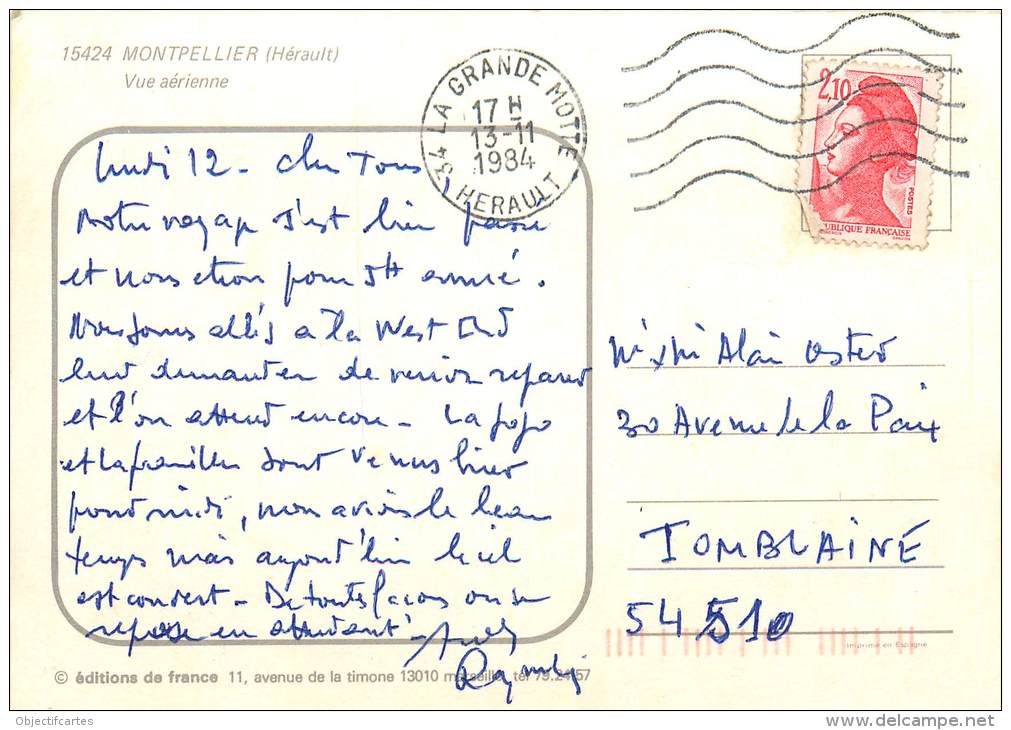 15424 MONTPELLIER (Hérault)
Vue aérienne
34 LA GRANDE MOTTE
17 H
13-11
1984
HERAULT
2,10
POSTES
RÉPUBLIQUE FRANÇAISE
Lundi 12 - Cher Tous,
Notre voyage s'est bien passé
et nous étions pour 5H arrivé.
Nous sommes allés à la West
leur demander de venir réparer
et l'on attend encore - La
et la famille sont venus hier
midi, nous avions le beau
temps mais aujourd'hui le ciel
est couvert - De toutes façons on se
repose en attendant -
Mr & Me Alain Oster
30 Avenue de la Paix
TOMBLAINE
54510
Imprimé en Espagne
© éditions de france 11, avenue de la timone 13010 marseille, tél 79.21.57
Objectifcartes
delcampe.net